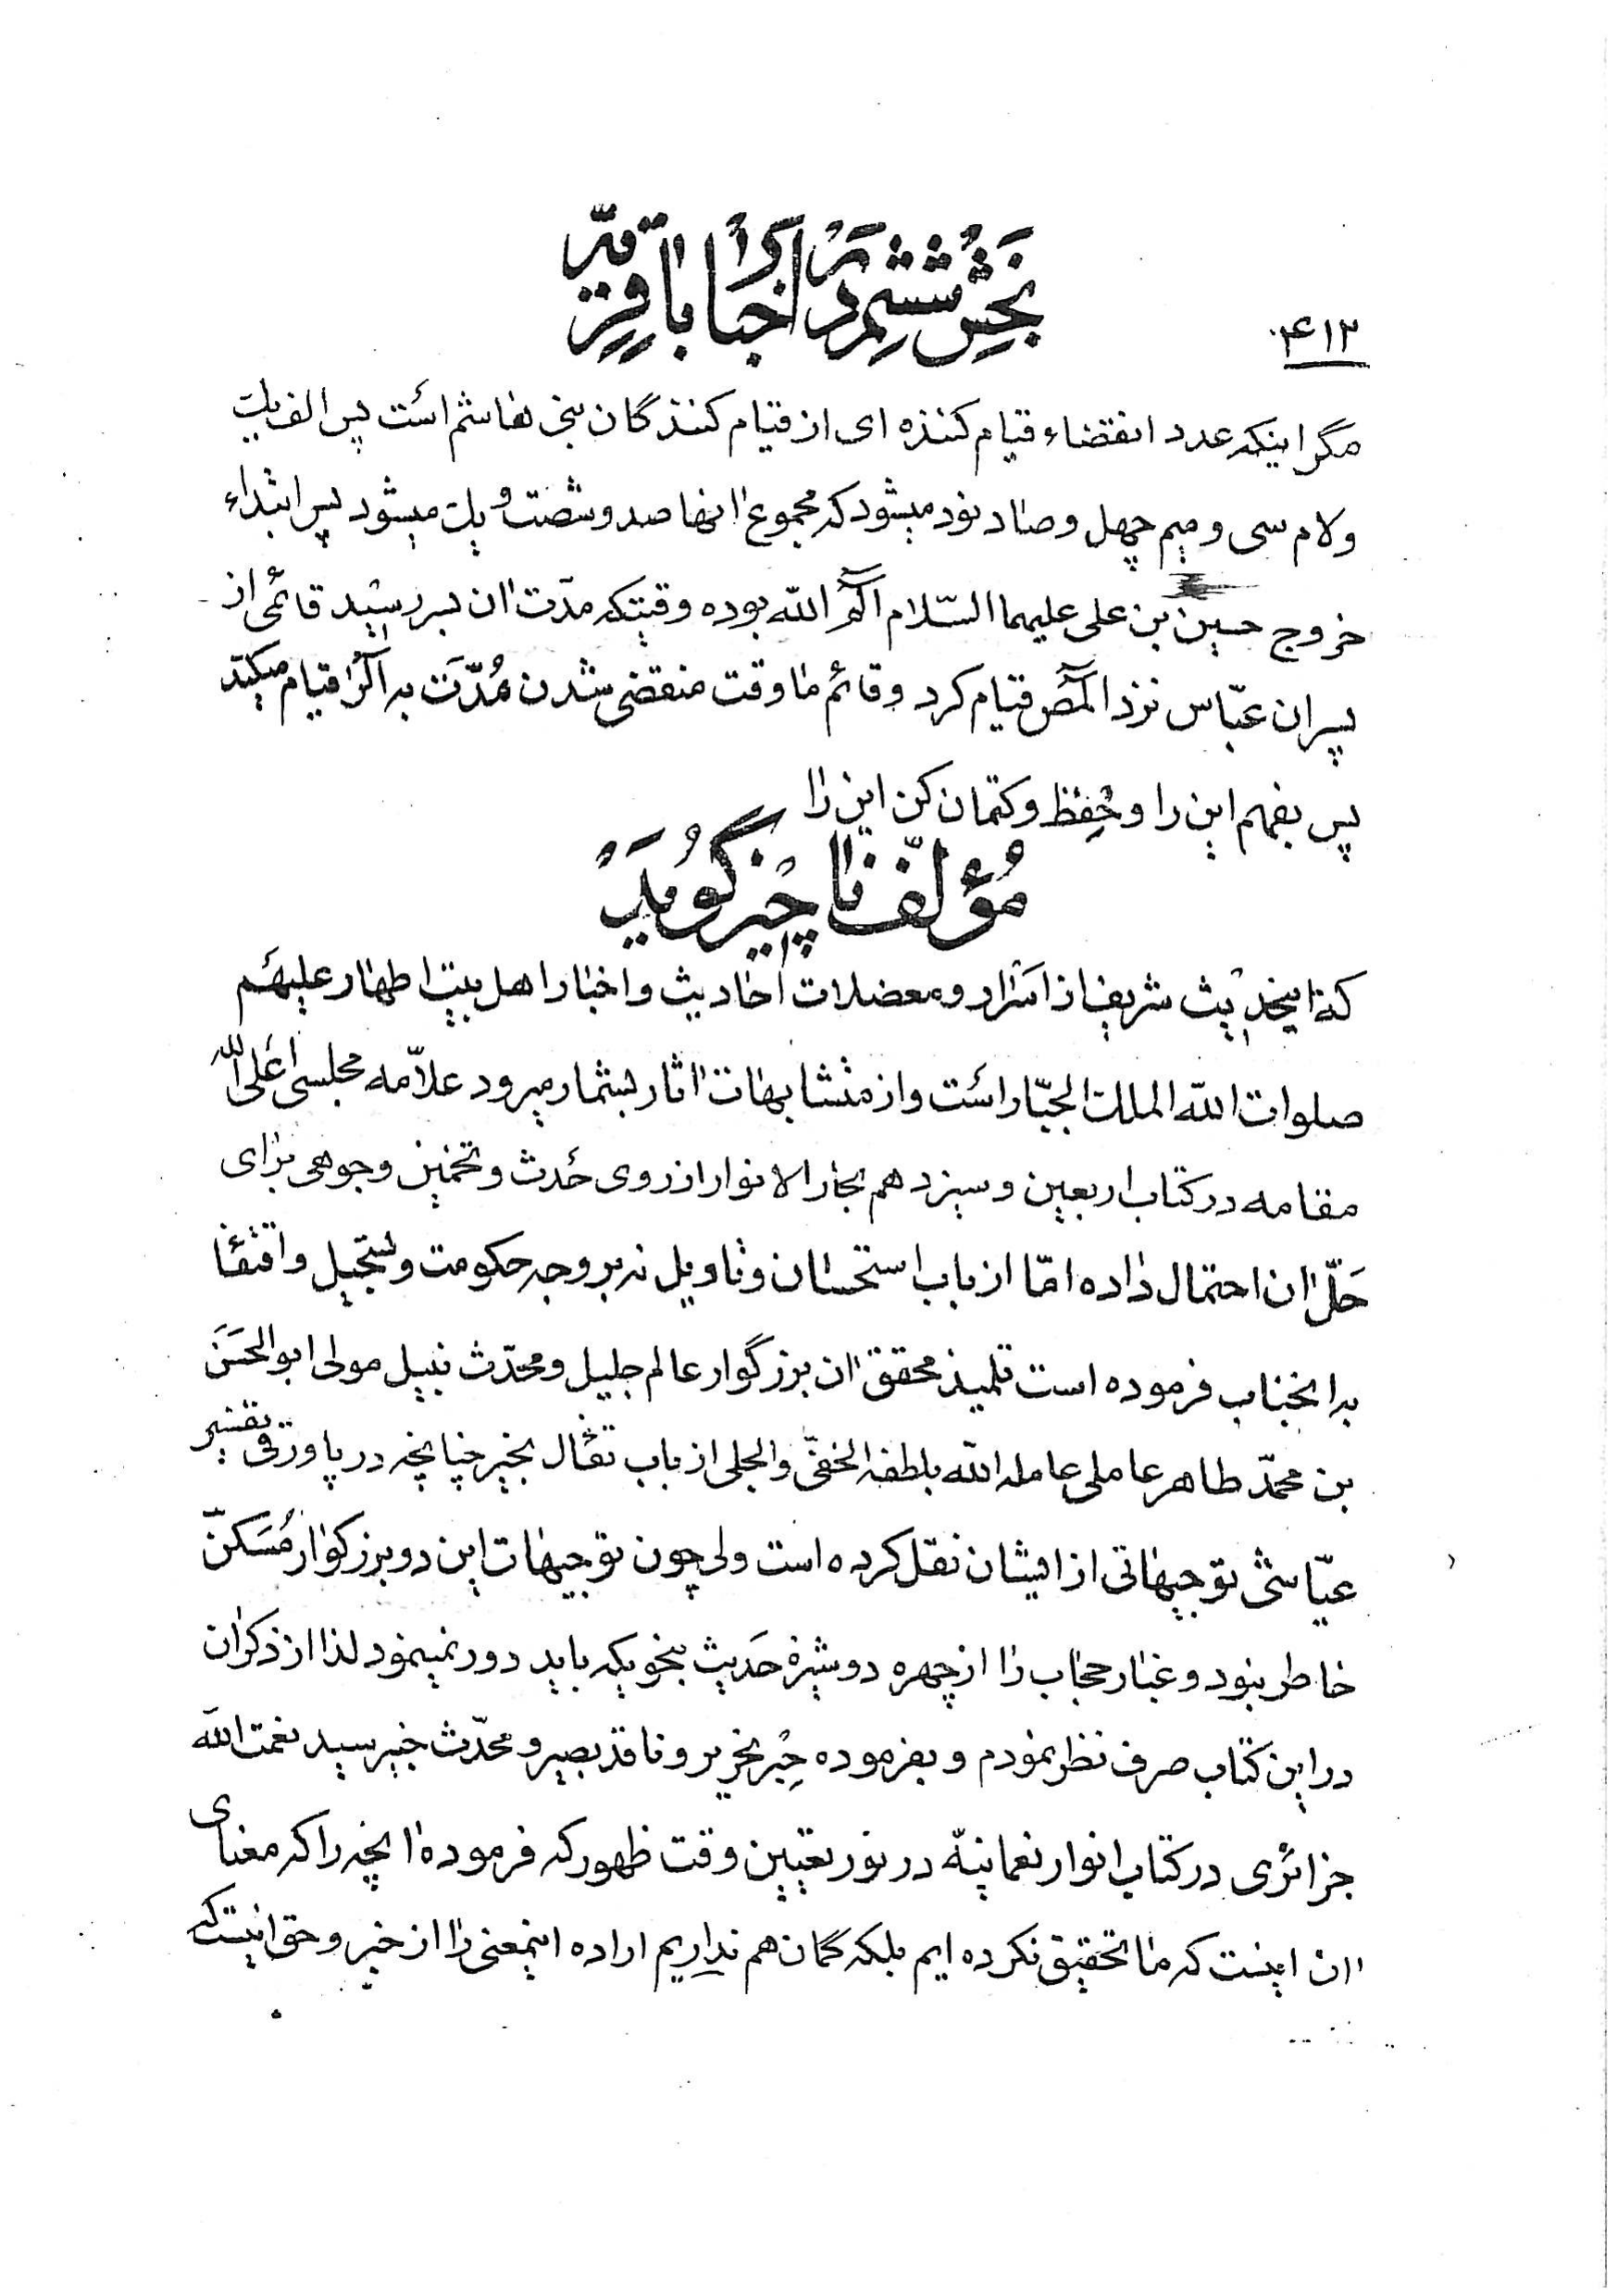 بخش ششم در اخبار باقریّه
۴۱۲
مگر اینکه عدد انقضاء قیام کننده ای از قیام کنندگان بنی هاشم است پس الف یک
ولام سی و میم چهل و صاد نود میشود که مجموع انها صد و شصت و یک میشود پس ابتداء
خروج حسین بن علی علیهما السّلام الٓمٓ الله بوده وقتیکه مدّت ان بسر رسید قائمی از
پسران عبّاس نزد المٓصٓ قیام کرد و قائم ما وقت منقضی شدن مُدّت به الٓرٰ قیام میکند
پس بفهم این را و حِفظ و کتمان کن این را
مُؤلّف ناچیز گُوید
که اینحدیث شریف از اسرار و معضلات احادیث و اخبار اهل بیت اطهار علیهم
صلوات الله الملک الجبّار است و از متشابهات اثار بشمار میرود علاّمه مجلسی اعلی الله
مقامه در کتاب اربعین و سیزدهم بحار الانوار از روی حَدث و تخمین وجوهی برای
حَلّ ان احتمال داده امّا از باب استحسان و تاویل نه بر وجه حکومت و تسجیل و اقتفا
بدانجناب فرموده است تلمیذ محقق ان بزرگوار عالم جلیل و محدّث نبیل مولی ابوالحسَن
بن محمّد طاهر عاملی عامله الله بلطفه الخفیّ والجلی از باب تفأل بخیر چنانچه در پاورقی تفسیر
عیّاشی توجیهاتی از ایشان نقل کرده است ولی چون توجیهات این دو بزرگوار مُسَکنّ
خاطر نبود و غبار حجاب را از چهره دوشیزۀ حَدیث بنحویکه باید دور نمینمود لذا از ذکر ان
در این کتاب صرف نظر نمودم و بفرموده حِبْر نحریر و ناقد بصیر و محدّث خبیر سید نعمت الله
جزائری در کتاب انوار نعمانیّه در نور تعیین وقت ظهور که فرموده انچه را که معنای
ان اینست که ما تحقیق نکرده ایم بلکه گمان هم نداریم اراده اینمعنی را از خبر و حق اینست که